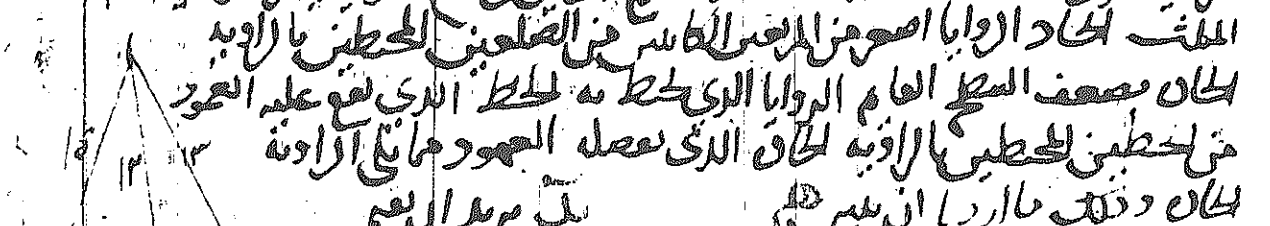 المثلث الحاد الزوايا اصغر من المربعين الكاينين من الضلعين المحيطين بالزاوية
الحادة بضعف السطح القايم الزوايا الذي يحيط به الخط الذي يقع عليه العمود
من الخطين المحيطين بالزاوية الحادة الذي يفصله العمود مما يلي الزاوية ١٣ ١٥
الحادة وذلك ما اردنا ان نبين نريد ان